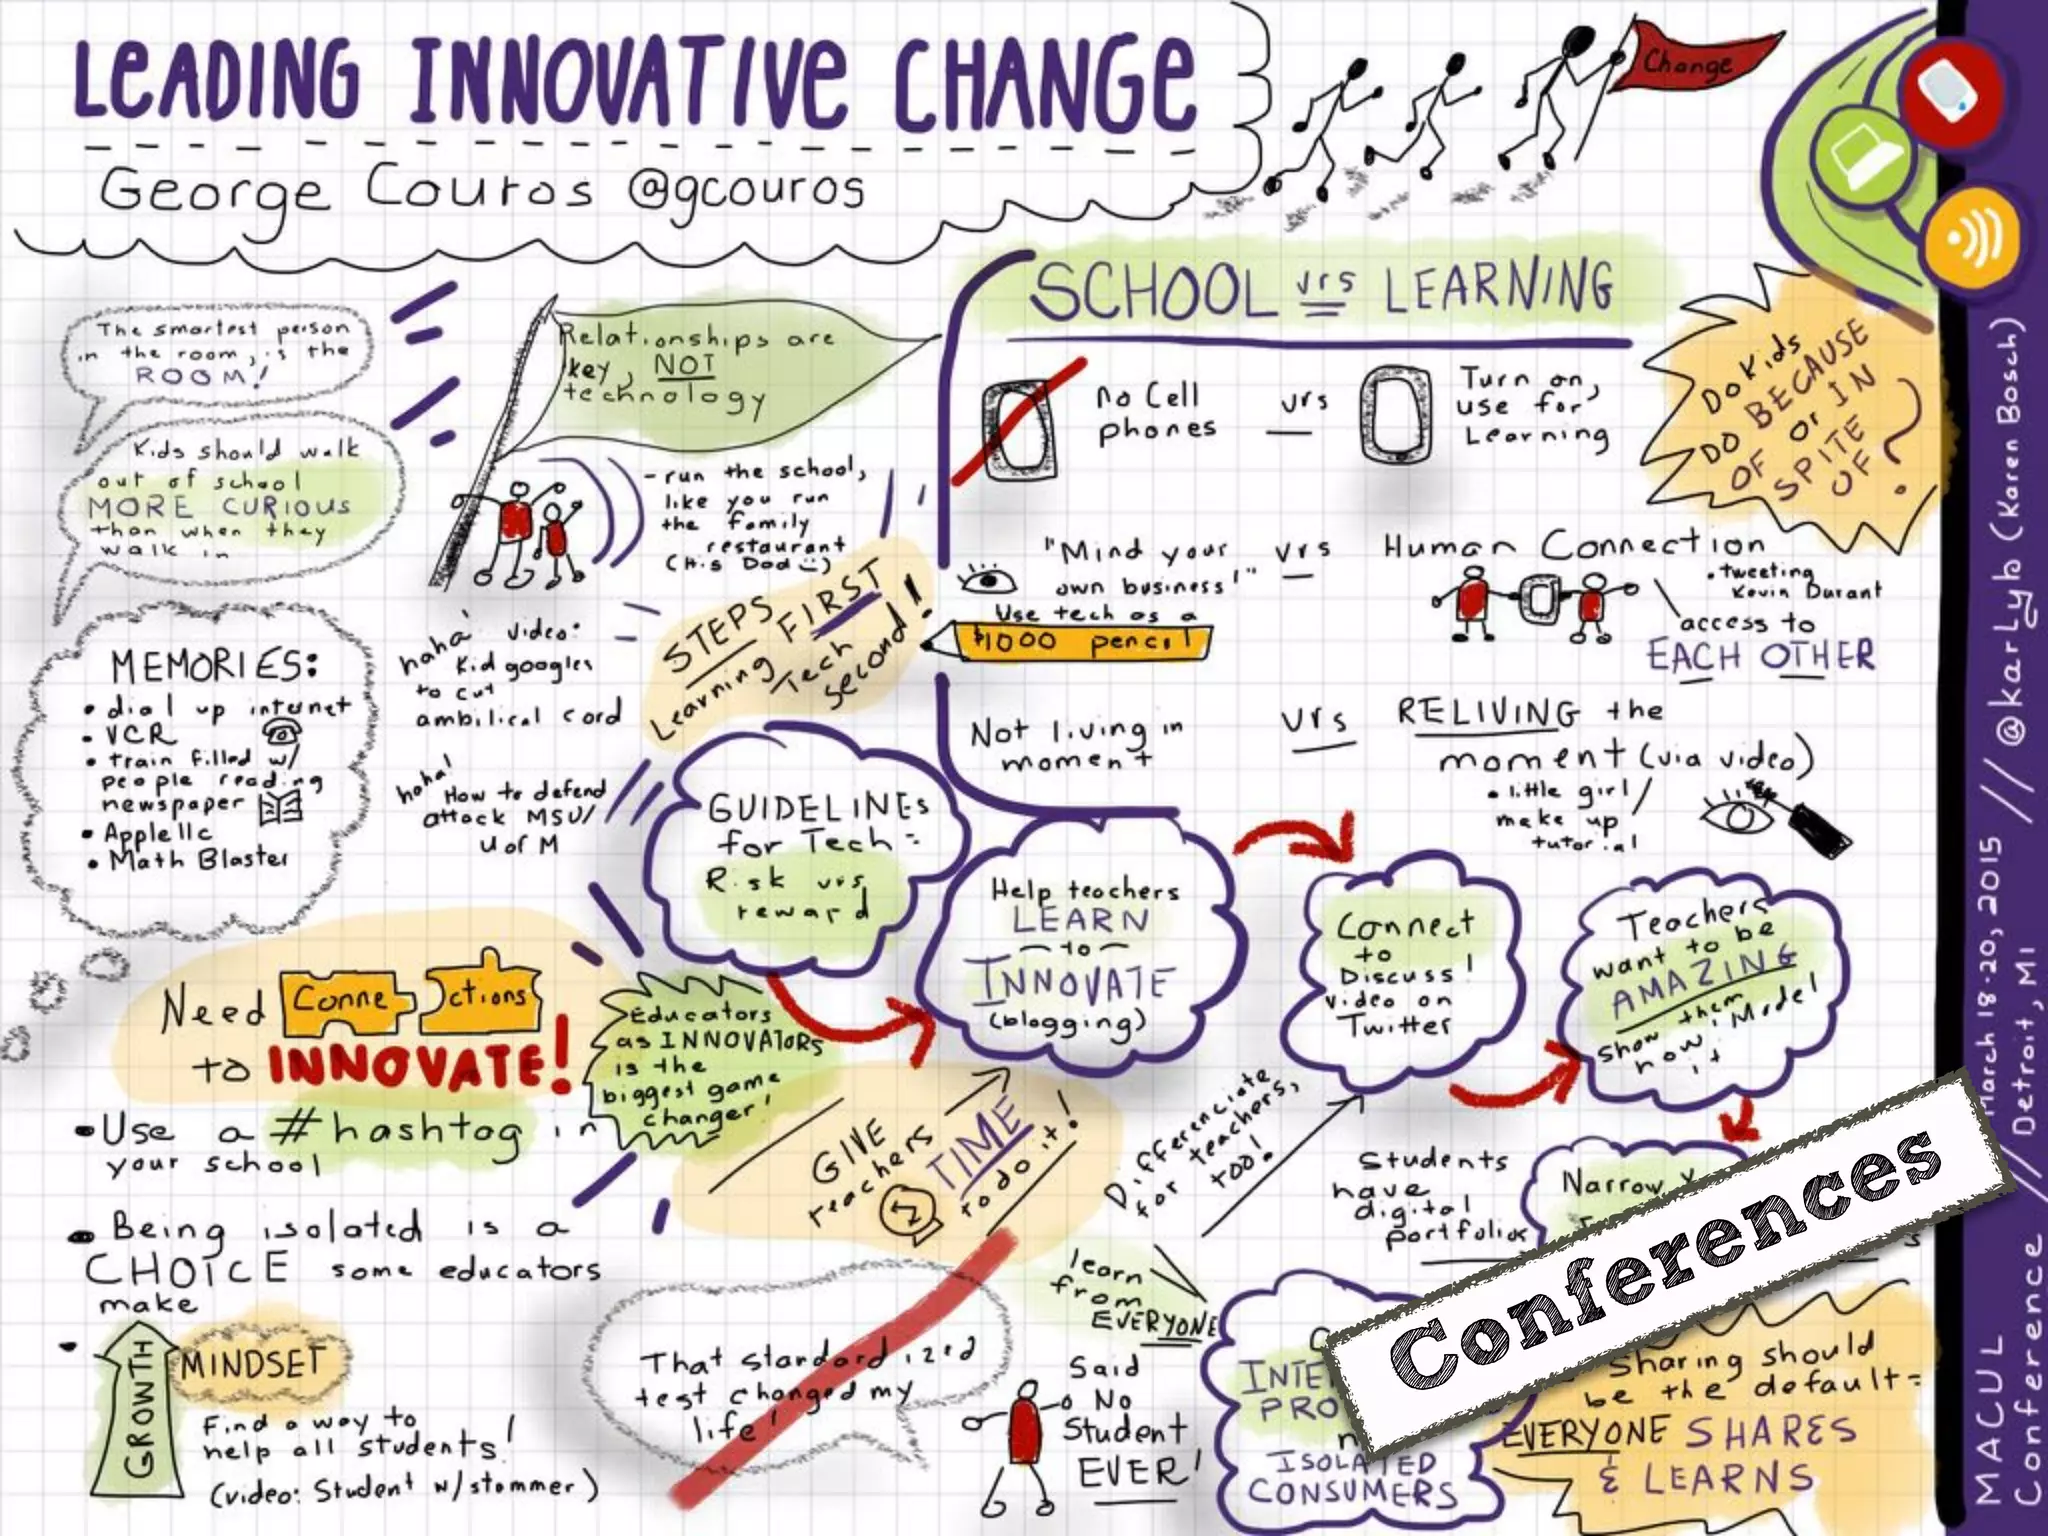 LEADING INNOVATIVE CHANGE
George Couros @gcouros
Change
The smartest person
in the room, is the
ROOM!
Kids should walk
out of school
MORE CURIOUS
than when they
walk in
Relationships are
key, NOT
technology
- run the school,
like you run
the family
restaurant
(His Dad :)
MEMORIES:
• dial up internet
• VCR
• train filled w/
people reading
newspaper
• Apple IIc
• Math Blaster
haha! Video:
Kid googles
to cut
ambilical cord
haha! How to defend
attack MSU/
U of M
STEPS
Learning FIRST
Tech
second!
SCHOOL vrs LEARNING
No Cell
phones
vrs
Turn on,
use for
Learning
"Mind your
own business!"
vrs
Human Connection
• tweeting
Kevin Durant
access to
EACH OTHER
Use tech as a
$1000 pencil
Not living in
moment
vrs
RELIVING the
moment (via video)
• little girl/
make up
tutorial
Do Kids
DO BECAUSE
OF or IN
SPITE
OF ?
GUIDELINEs
for Tech =
Risk vrs
reward
Help teachers
LEARN
to
INNOVATE
(blogging)
Connect
to
Discuss!
Video on
Twitter
Teachers
want to be
AMAZING
show them
how! Model
it
Need Conne ctions
to INNOVATE!
Educators
as INNOVATORS
is the
biggest game
changer!
• Use a #hashtag in
your school
• Being isolated is a
CHOICE some educators
make
•
GROWTH
MINDSET
Find a way to
help all students!
(video: Student w/stammer)
GIVE
teachers
TIME
to do it!
Differenciate
for teachers,
too!
Students
have
digital
portfolios
Narrow
learn
from
EVERYONE
That standardized
test changed my
life!
Said
No
Student
EVER!
INTE
PRO
ISOLATED
CONSUMERS
Sharing should
be the default=
EVERYONE SHARES
& LEARNS
Conferences
MACUL March 18-20, 2015 // @karlyb (Karen Bosch)
Conference // Detroit, MI